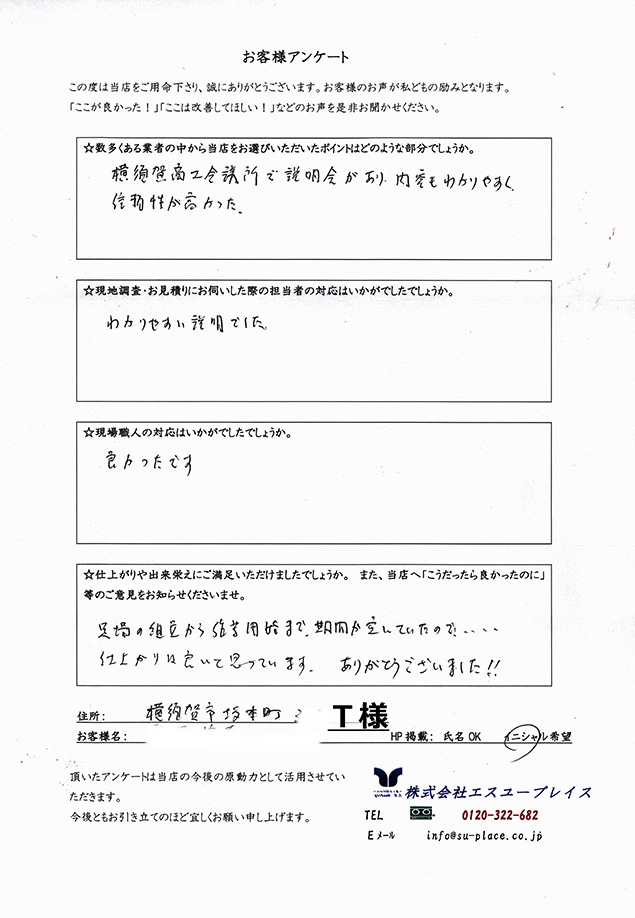 お客様アンケート
この度は当店をご用命下さり、誠にありがとうございます。お客様のお声が私どもの励みとなります。
「ここが良かった！」「ここは改善してほしい！」などのお声を是非お聞かせください。
☆数多くある業者の中から当店をお選びいただいたポイントはどのような部分でしょうか。
横須賀商工会議所で説明会があり、内容もわかりやすく、
信頼性が高かった。
☆現地調査・お見積りにお伺いした際の担当者の対応はいかがでしたでしょうか。
わかりやすい説明でした。
☆現場職人の対応はいかがでしたでしょうか。
良かったです
☆仕上がりや出来栄えにご満足いただけましたでしょうか。 また、当店へ「こうだったら良かったのに」
等のご意見をお知らせくださいませ。
足場の組立から 開始まで、期間が空いていたので、・・・・
仕上がりは良いと思っています。 ありがとうございました!!
住所: 横須賀市坂本町 T様
お客様名: HP掲載: 氏名OK イニシャル希望
頂いたアンケートは当店の今後の原動力として活用させてい
ただきます。
今後ともお引き立てのほど宜しくお願い申し上げます。
株式会社エスユープレイス
TEL 0120-322-682
Eメール info@su-place.co.jp